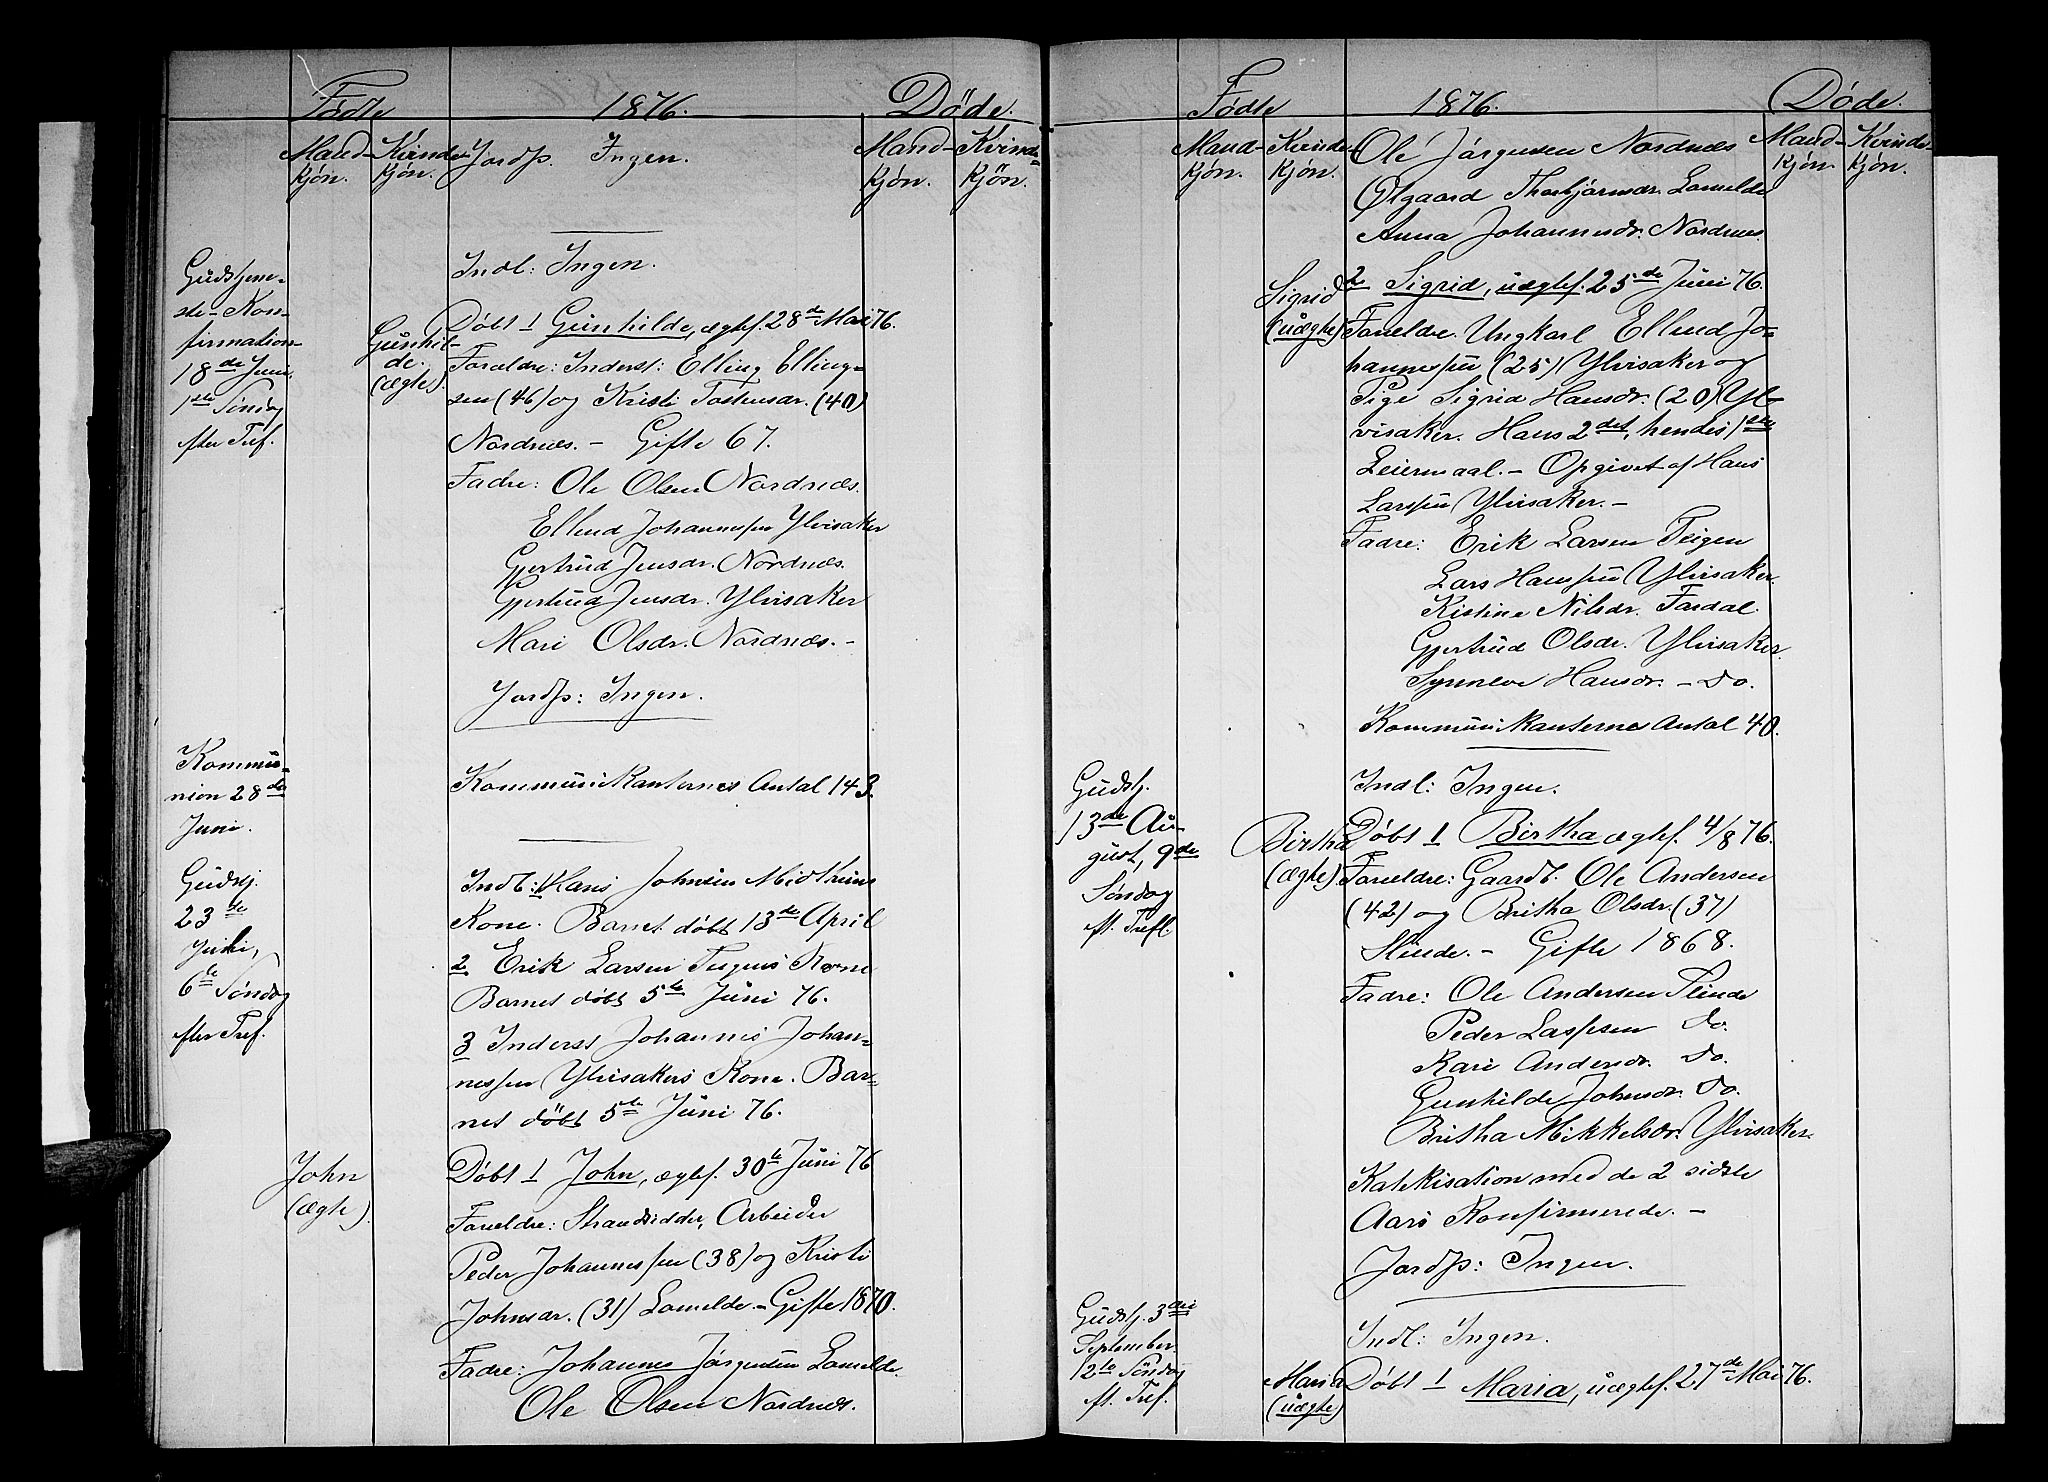 Fødte
1876.
Döde.
Mand-
kjøn.
Kvinde-
kjøn.
Jordfs. Ingen.
Mand-
kjön.
Kvinde-
kjön.
Indl: Ingen.
Gudstjene-
ste-Kon-
firmation
18de Juni.
1ste Søndag
efter Tref.
Gunhil-
de.
(ægte).
Døbt 1 Gunhilde, ægtef. 28de Mai 76.
Foreldre: Inderst: Elling Elling-
sen (46) og Kristi Tostensdr. (40)
Nordnæs. - Gifte 67.
Fadre: Ole Olsen Nordnæs.
Ellend Johannessen Ylvisaker
Gjertrud Jensdr. Nordnæs.
Gjertrud Jensdr. Ylvisaker
Mari Olsdr. Nordnæs. -
Jordfs: Ingen.
Kommu-
nion 28de
Juni.
Kommunikanternes Antal 143.
Gudstj.
23de
Juli,
6te Søndag
efter Tref.
Indl: 1 Hans Johnsen
Kone. Barnet døbt 13de April
2 Erik Larsen Teigens Kone
Barnet døbt 5te Juni 76.
3 Inderst Johannes Johan-
nessen Ylvisakers Kone. Bar-
net döbt 5te Juni 76.
John
(ægte).
Døbt 1 John, ægtef. 30te Juni 76
Foreldre: Strandsidder, Arbeider
Peder Johannessen (38) og Kristi
Johnsdr. (31) Lomelde. - Gifte 1870.
Fadre: Johannes Jørgensen Lomelde.
Ole Olsen Nordnæs.
Fødte
1876.
Døde.
Mand-
kjøn.
Kvinde-
kjøn.
Mand-
kjøn.
Kvinde-
kjøn.
Ole Jørgensen Nordnæs
Ølgaard Thorbjørnsdr. Lomelde
Anna Johannesdr. Nordnæs.
Sigrid
(uægte)
2 Sigrid, uægtef. 25de Juni 76.
Foreldre. Ungkarl Ellend Jo-
hannessen (25) Ylvisaker og
Pige Sigrid Hansdr. (20) Yl-
visaker. Hans 2det, hendes 1ste
Leiermaal. - Opgivet af Hans
Larssen Ylvisaker. -
Fadre: Erik Larsen Teigen
Lars Hanssen Ylvisaker
Kistine Nilsdr. Fardal.
Gjertrud Olsdr. Ylvisaker.
Synneve Hansdr. - Do.
Kommunikanternes Antal 40.
Gudstj.
13de Au-
gust, 9de
Søndag
ft. Trefl.
Indl: Ingen.
Birtha
(ægte)
Døbt 1 Birtha ægtef. 4/8 76.
Foreldre: Gaardb. Ole Andersen
(42) og Britha Olsdr. (37)
Slinde. - Gifte 1868.
Fadre: Ole Andersen Slinde
Peder Lassesen Do.
Kari Andersdr. Do.
Gunhilde Johnsdr. Do.
Britha Mikkelsdr. Ylvisaker.
Katekisation med de 2 sidste
Aars Konfirmerede. -
Jordfs: Ingen.
Gudstj. 3die
September.
12te Söndag
ft. Tref.
Indl: Ingen.
Maria
(uægte)
Døbt 1 Maria, uægtef. 27de Mai 76.